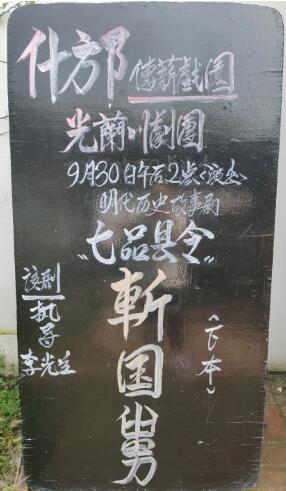 什邡 傳薪戲園
光蘭川劇團
9月30日午后2点<演出>
明代历史故事剧
"七品县令"
斬国舅
(下本)
该剧
执导
李光兰